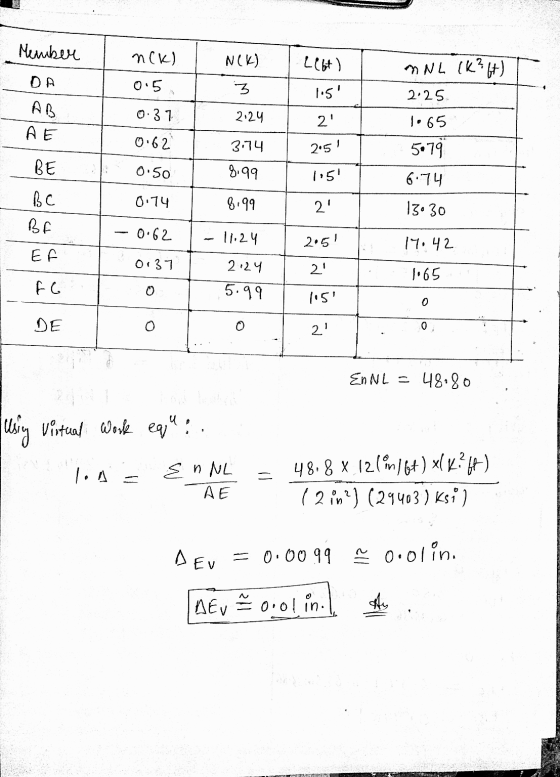 Member n(K) N(K) L(ft) nNL (K² ft)
DA 0.5 3 1.5' 2.25
AB 0.37 2.24 2' 1.65
AE 0.62 3.74 2.5' 5.79
BE 0.50 8.99 1.5' 6.74
BC 0.74 8.99 2' 13.30
BF - 0.62 - 11.24 2.5' 17.42
EF 0.37 2.24 2' 1.65
FC 0 5.99 1.5' 0
DE 0 0 2' 0
ΣnNL = 48.80
Using Virtual Work eqⁿ :.
1.Δ = Σ nNL / AE = 48.8 x 12(in/ft) x(K² ft) / (2 in²) (29403) Ksi)
Δ Ev = 0.0099 ≅ 0.01 in.
ΔEv ≅ 0.01 in. Ans.